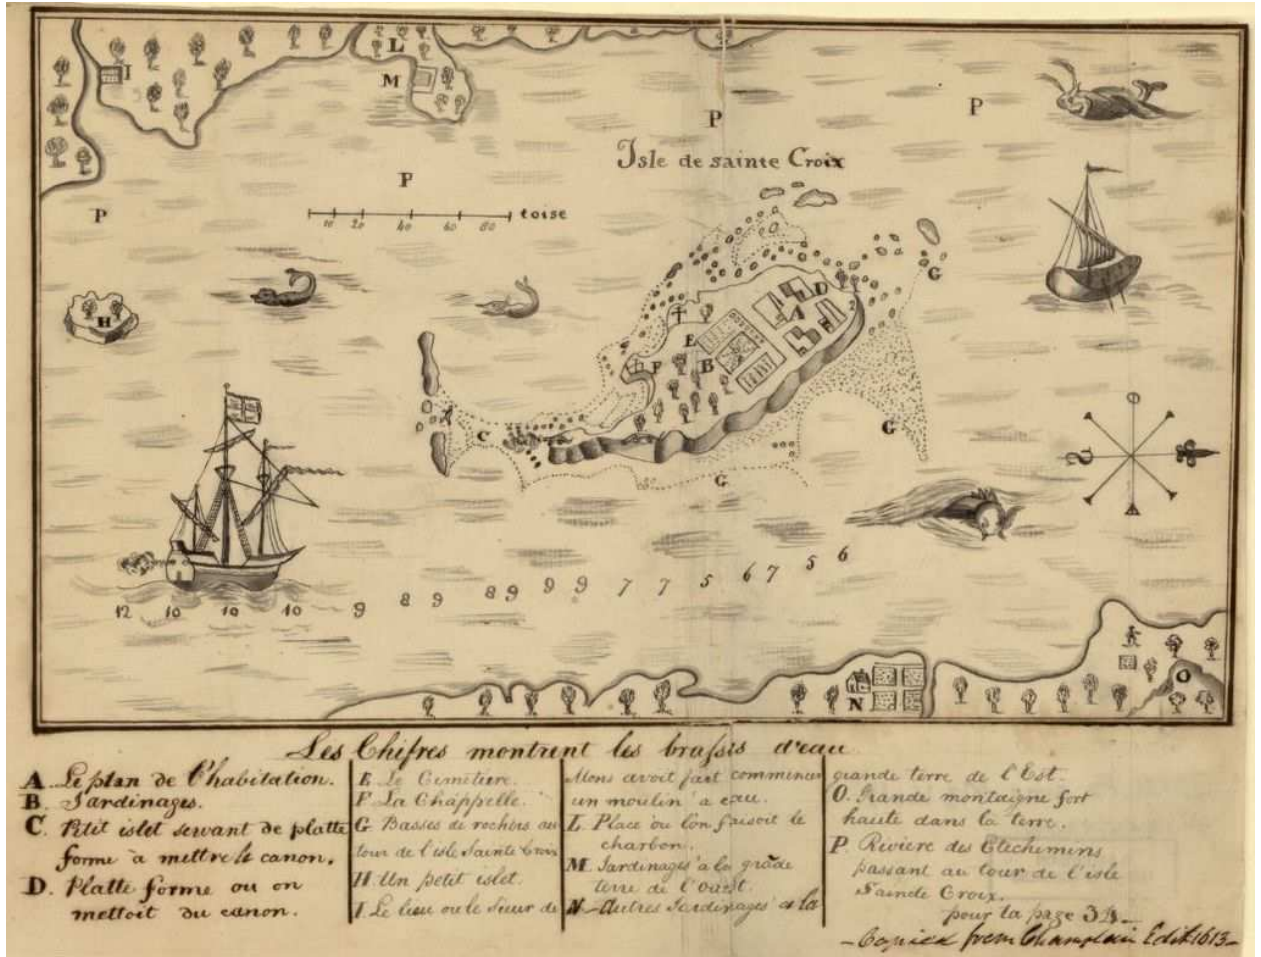 L
I
M
P
P
Isle de sainte Croix
P
P
toise
10 20 40 60 80
G
H
D
A
2
E
F
B
C
G
G
12 10 10 10 9 8 9 8 9 9 9 7 7 5 6 7 5 6
O
N
Les Chifres montrent les brassis d'eau
A. Le plan de l'habitation.
B. Jardinages.
C. Petit islet servant de platte
forme à mettre le canon.
D. Platte forme ou on
mettoit du canon.
E Le Cimetiere.
F La Chappelle.
G Basses de rochers au
tour de l'isle Sainte Croix
H. Un petit islet.
I Le lieu ou le Sieur de
Mons avoit fait commencer
un moulin à eau.
L. Place ou lon faisoit le
charbon.
M. Jardinages à la grāde
terre de l'Ouest.
N Autres Jardinages a la
grande terre de l'Est.
O. Grande montaigne fort
haute dans la terre.
P. Riviere des Etechemins
passant au tour de l'isle
Saincte Croix.
pour la page
Copied from Champlain Edit. 1613